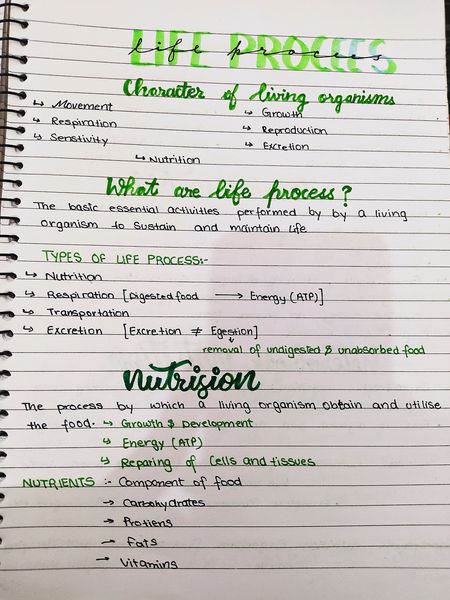 LIFE PROCEES
Character of living organisms
↳ Movement ↳ Growth
↳ Respiration ↳ Reproduction
↳ Senstivity ↳ Excretion
↳ Nutrition
What are life process?
The basic essential activities performed by by a living
organism to sustain and maintain life
TYPES OF LIFE PROCESS:-
↳ Nutrition
↳ Respiration [Digested food → Energy (ATP)]
↳ Transportation
↳ Excretion [Excretion ≠ Egestion]
↓
removal of undigested & unabsorbed food
nutrision
The process by which a living organism obtain and utilise
the food. ↳ Growth & Development
↳ Energy (ATP)
↳ Reparing of cells and tissues
NUTRIENTS :- Component of food
→ Carbohydrates
→ Protiens
→ Fats
→ Vitamins